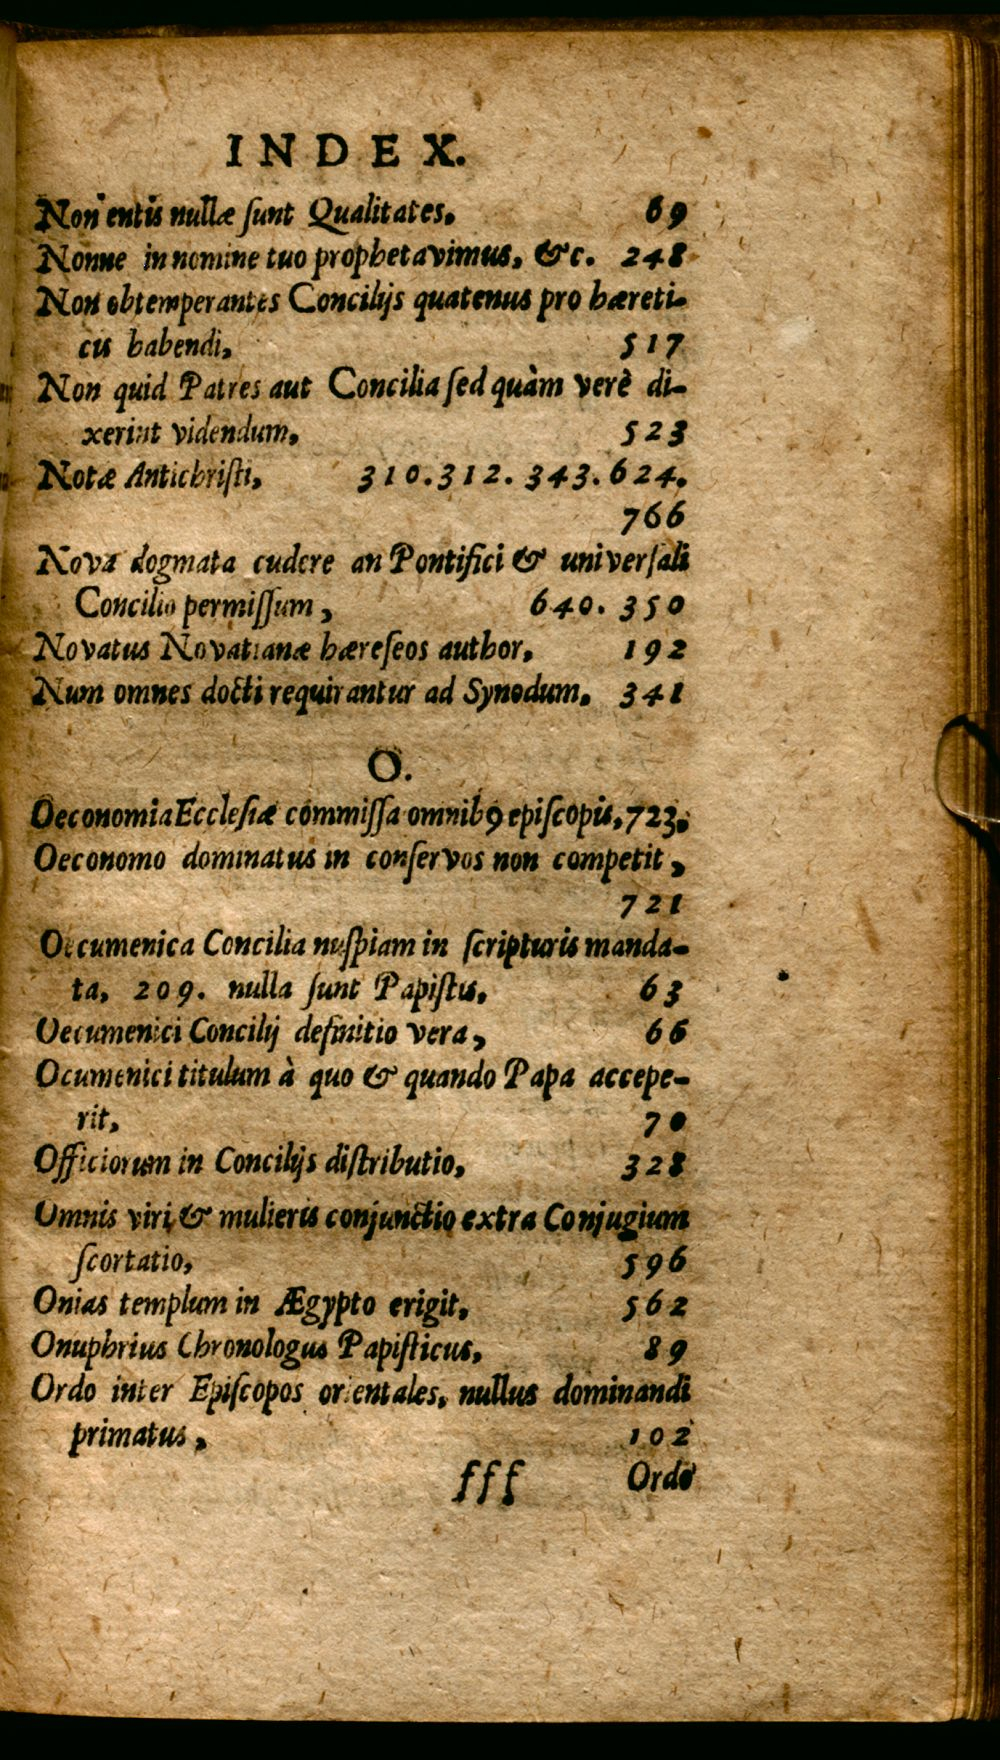 INDEX.
Non entis nullæ ſunt Qualitates. 69
Nonne in nomine tuo prophetavimus, &c. 248
Non obtemperantes Concilijs quatenus pro hæreti-
cis habendi, 517
Non quid Patres aut Concilia ſed quàm verè di-
xerint videndum, 523
Notæ Antichriſti, 310.312.343.624.
766
Nova dogmata cudere an Pontifici & univerſali
Concilio permiſſum, 640.350
Novatus Novatianæ hæreſeos author, 192
Num omnes docti requirantur ad Synodum. 341
O.
Oeconomia Eccleſiæ commiſſa omnibꝰ epiſcopis, 723.
Oeconomo dominatus in conſervos non competit,
721
Oecumenica Concilia nuſpiam in ſcripturis manda-
ta, 209. nulla ſunt Papiſtis, 63
Oecumenici Concilij definitio vera, 66
Ocumenici titulum à quo & quando Papa accepe-
rit, 70
Officiorum in Concilijs diſtributio, 328
Omnis viri & mulieris conjunctio extra Conjugium
ſcortatio, 596
Onias templum in Ægypto erigit, 562
Onuphrius Chronologus Papiſticus, 89
Ordo inter Epiſcopos orientales, nullus dominandi
primatus, 102
fff Ordo